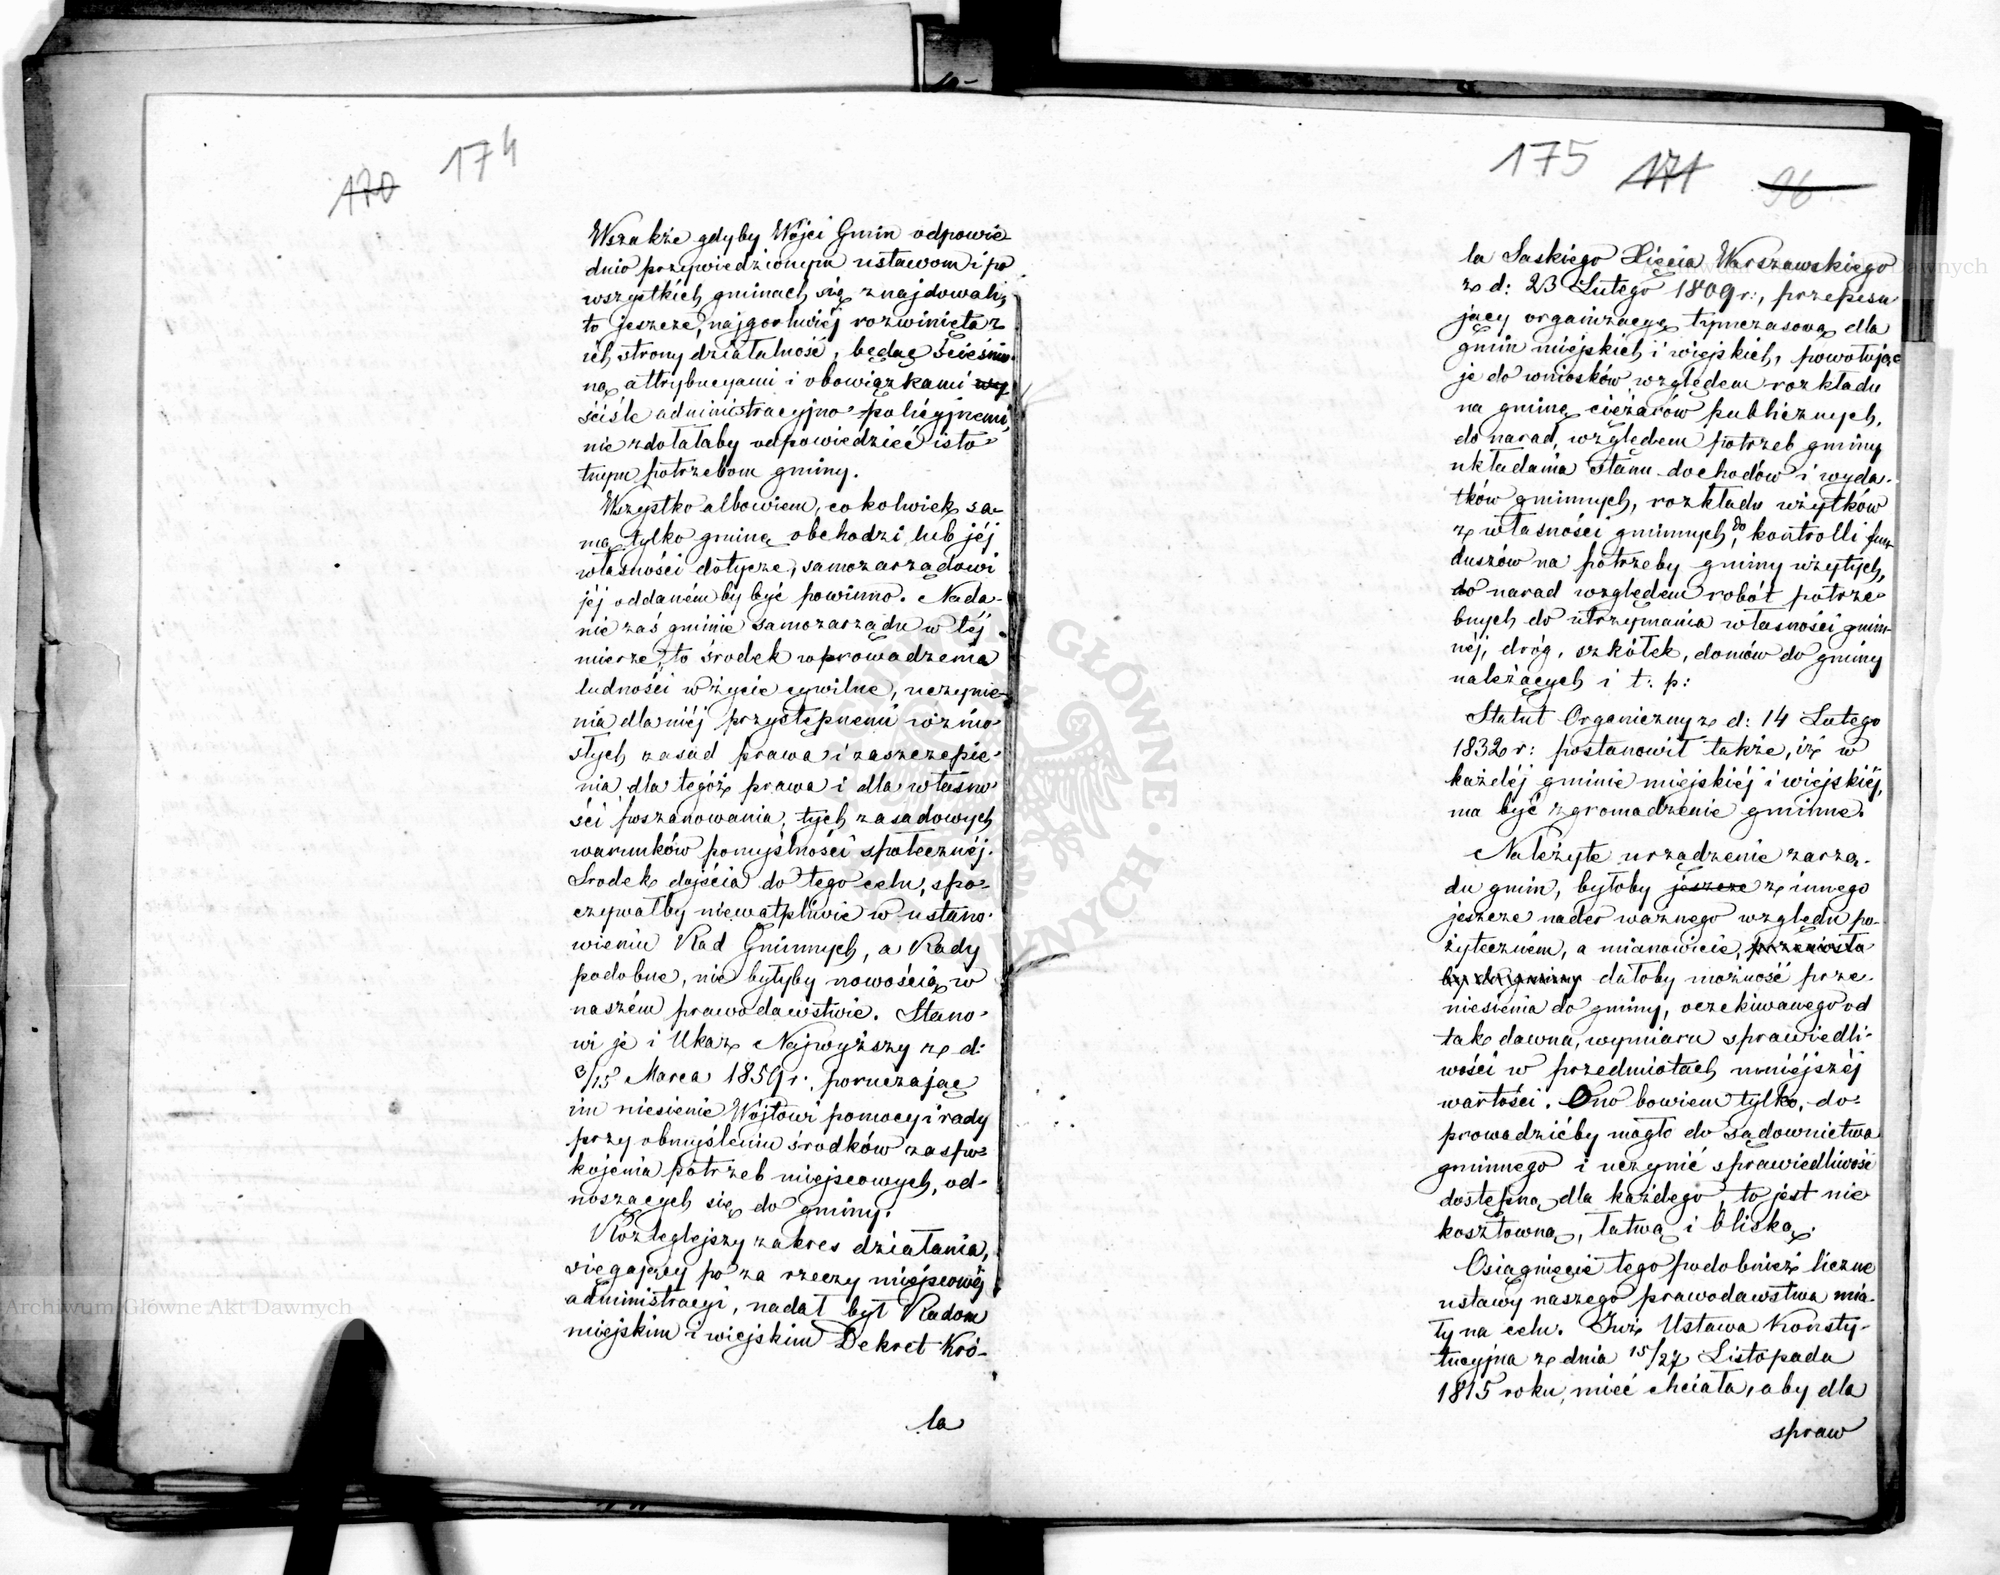 170 174
Wszakże gdyby Wójci Gmin odpowie
dnio przywiedzionym ustawom i po
wszystkich gminach się znajdowali,
to jeszcze, najgorliwiéj rozwinięta z
ich strony działalność, będąc ścieśnio
ną attrybucyami i obowiązkami wy
ściśle administracyjno-policyjnemi,
nie zdołałaby odpowiedzieć isto-
tnym potrzebom gminy.
Wszystko albowiem, cokolwiek sa-
mą tylko gminę obchodzi lub jéj
własności dotycze, samozarządowi
jéj oddaném by być powinno. Nada-
nie zaś gminie samozarządu w téj
mierze, to środek wprowadzenia
ludności w życie cywilne, uczynie-
nia dla niéj przystępnemi wznio-
słych zasad prawa i zaszczepie-
nia dla tegóż prawa i dla własno-
ści poszanowania, tych zasadowych
warunków pomyślności społecznéj.
Środek dojścia do tego celu, spo-
czywałby niewątpliwie w ustano-
wieniu Rad Gminnych, a Rady
podobne, nie byłyby nowością w
naszém prawodawstwie. Stano-
wi je i Ukaz Najwyższy z d:
3/15 Marca 1859 r. poruczając
im niesienie Wójtowi pomocy i rady
przy obmyśleniu środków zaspo-
kojenia potrzeb miejscowych, od-
noszących się do gminy.
Rozleglejszy zakres działania,
sięgający po za rzeczy miejscowéj
administracyi, nadał był Radom
miejskim i wiejskim Dekret Kró-
la
175 171 96
la Saskiego Xięcia Warszawskiego
z d: 23 Lutego 1809 r:, przepisu
jący organizacyę tymczasową dla
gmin miejskich i wiejskich, powołując
je do wniosków względem rozkładu
na gminę ciężarów publicznych,
do narad, względem potrzeb gminy
układania stanu dochodów i wyda-
tków gminnych, rozkładu użytków
z własności gminnych, do kontrolli fun
duszów na potrzeby gminy użytych,
do narad względem robót potrze-
bnych do utrzymania własności gmin-
néj, dróg, szkółek, domów do gminy
należących i t: p:
Statut Organiczny z d: 14 Lutego
1832 r: postanowił także, iż w
każdéj gminie miejskiéj i wiejskiéj,
ma być zgromadzenie gminne.
Należyte urządzenie zarzą-
du gmin, byłoby jeszcze z innego
jeszcze nader ważnego względu po-
żyteczném, a mianowicie, przeniosło
by do gminy dałoby możność prze-
niesienia do gminy, oczekiwanego od
tak dawna, wymiaru sprawiedli-
wości w przedmiotach mniéjszéj
wartości. Ono bowiem tylko, do-
prowadzićby mogło do sądownictwa
gminnego i uczynić sprawiedliwość
dostępną dla każdego, to jest nie
kosztowną, łatwą i bliską.
Osiągnięcie tego podobnież liczne
ustawy naszego prawodawstwa mia-
ły na celu. Już Ustawa Konsty-
tucyjna z dnia 15/27 Listopada
1815 roku, mieć chciała, aby dla
spraw
Archiwum Główne Akt Dawnych